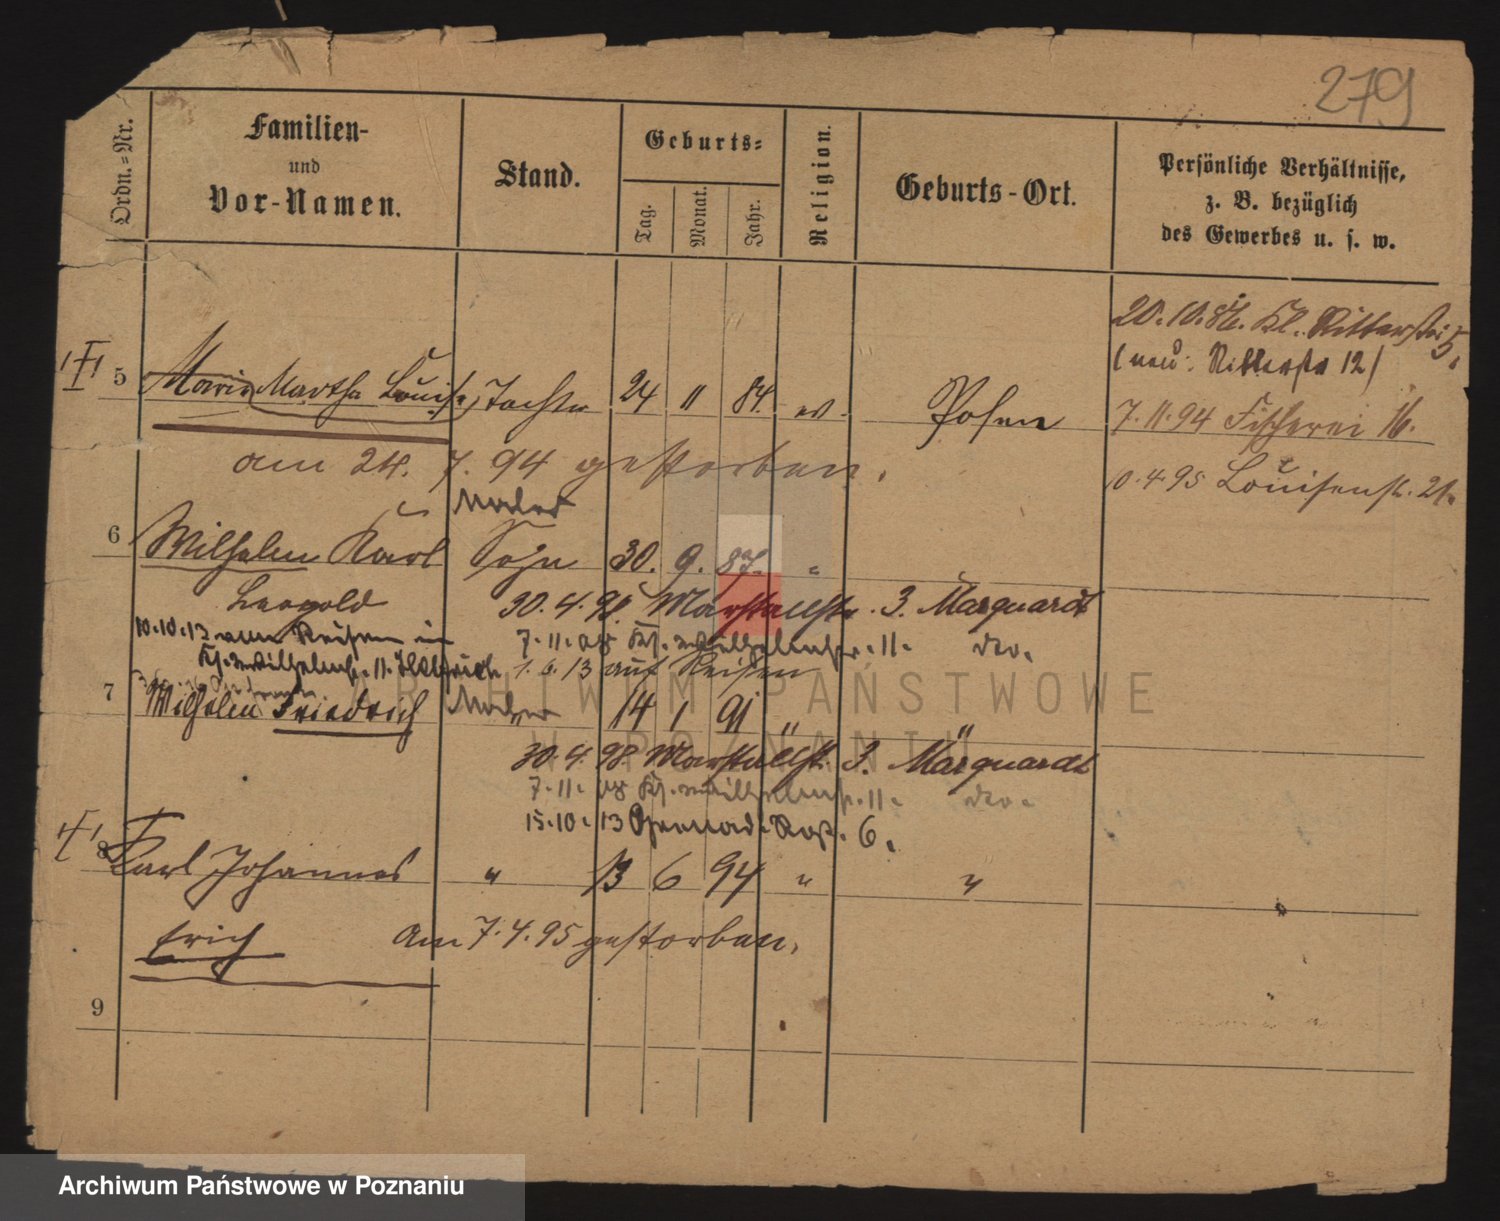 279
Ordn.=Nr.
Familien-
und
Vor-Namen.
Stand.
Geburts=
Tag.
Monat.
Jahr.
Religion.
Geburts-Ort.
Persönliche Verhältnisse,
z. B. bezüglich
des Gewerbes u. s. w.
20.10.86. Kl. Ritterstr. 5.
(neu: Ritterstr 12)
5 Marie Martha Louise, Tochter 24 11 84. ev. Posen
7.11.94 Fischerei 16.
am 24. 7. 94 gestorben.
0.4.95 Louisenst. 21.
6 Wilhelm Karl Sohn 30. 9. 87. "
Leopold 30.4.98. Marstallstr. 3. Marquardt
10.10.13 von Reisen in 7.11.08 Ks. Wilhelmstr. 11. dto.
Ks. Wilhelmstr. 11. 1.6.13 auf Reisen
7 Wilhelm Friedrich 14 1 91 " "
30.4.98 Marstallst. 3. Marquardt
7.11.08 Ks. Wilhelmstr. 11. dto.
15.10.13 6.
8 Karl Johannes " 13 6 94 " "
Erich Am 7.4.95 gestorben.
9
ARCHIWUM PAŃSTWOWE
W POZNANIU
Archiwum Państwowe w Poznaniu